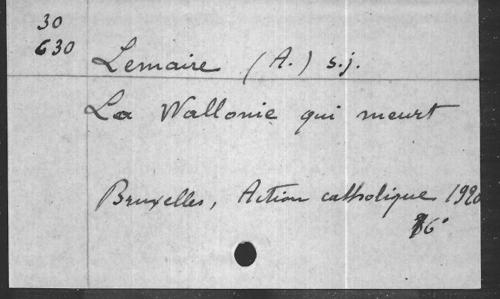 30
630
Lemaire (A.) s.j.
La Wallonie qui meurt
Bruxelles, Action catholique 1920
16°